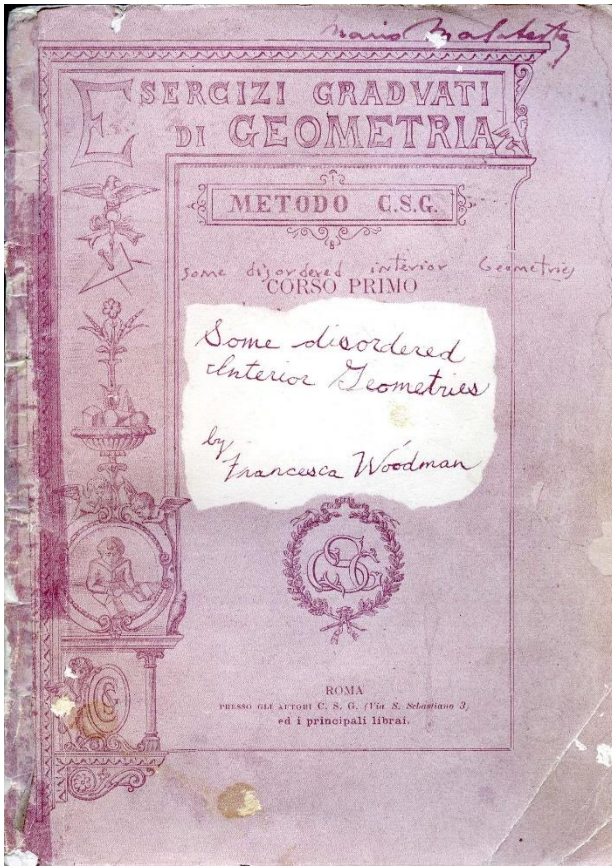 Mario
ESERCIZI GRADVATI
DI GEOMETRIA
METODO C.S.G.
some disordered interior Geometries
CORSO PRIMO
Some disordered
Interior Geometries
by
Francesca Woodman
CSG
ROMA
PRESSO GLI AUTORI C. S. G. (Via S. Sebastiano 3)
ed i principali librai.